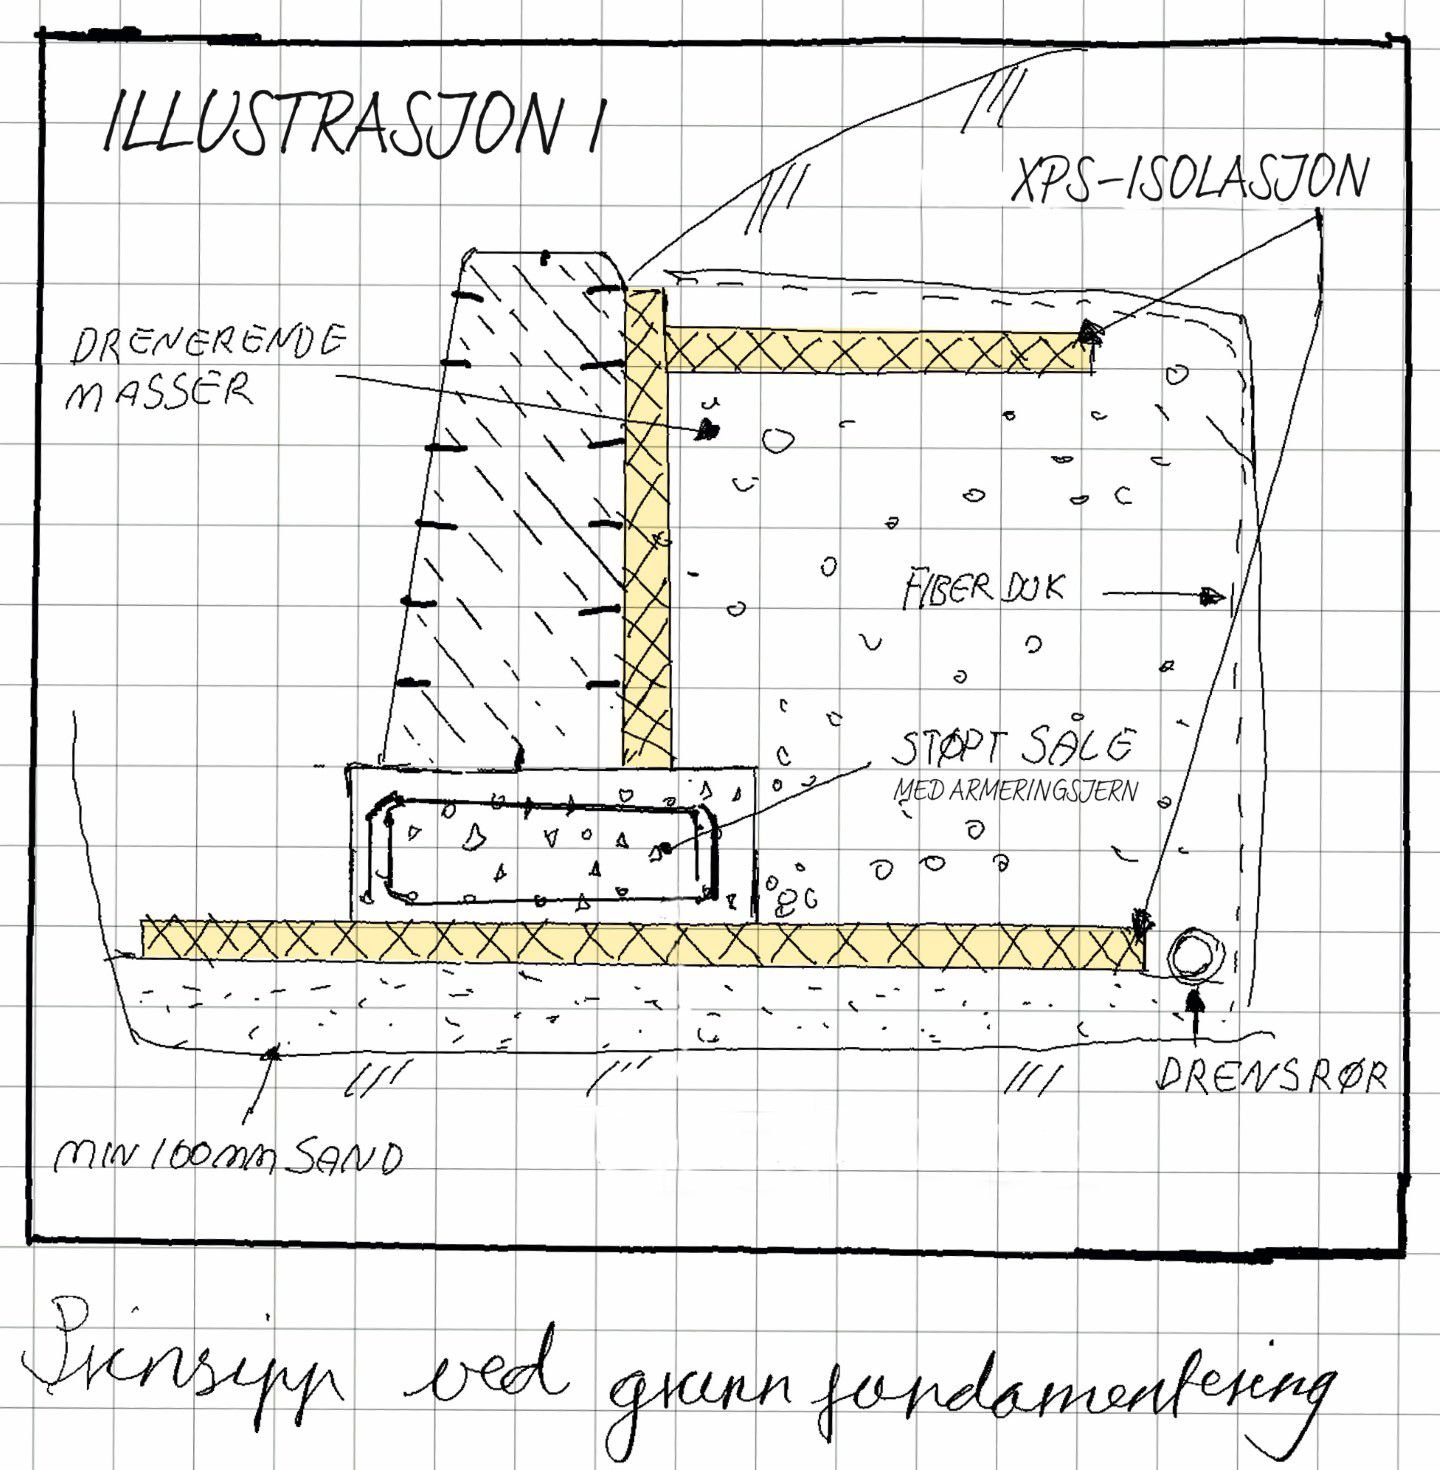 ILLUSTRASJON 1
XPS-ISOLASJON
DRENERENDE
MASSER
FIBERDUK
STØPT SÅLE
MED ARMERINGSJERN
DRENSRØR
MIN 100mm SAND
Prinsipp ved grunn fundamentering